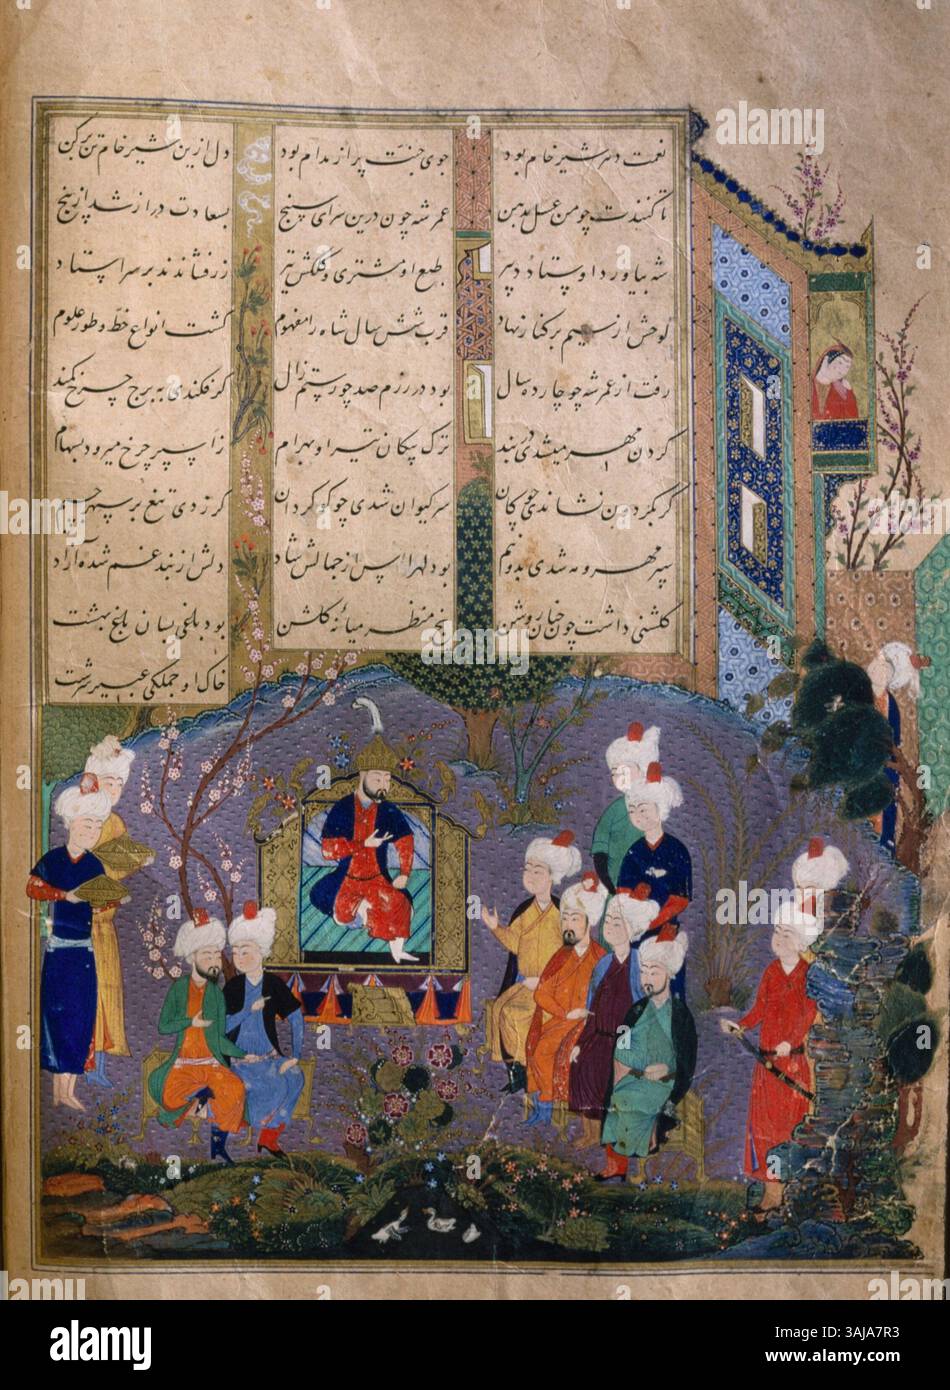 نعمت دهر شیر خام بود جوی جنت پر از مدام بود دل ازین شیر خام تن بر کن
تا کنندت چو من عسل بدهن عمر شه چون درین سرای سپنج بسعادت دراز شد از پنج
شه بیاورد اوستاد دبیر طبع او مشتری و کلکش تیر زر فشاندند بر سر استاد
لوحش از سیم بر کنار نهاد قرب شش سال شاه را مفهوم گشت انواع خط و طور علوم
رفت از عمر شه چو چارده سال بود در رزم صد چو رستم زال گر فکندی به برج چرخ کمند
گردن مهر میشدی در بند ترک پیکان تیر او بهرام سپر چرخ
گر بگردون نشاندی پیکان سر کیوان شدی چو گردان گر زدی تیغ بر سپهر
سپر مهر و مه شدی بدو نیم بود لهراسپ از جمالش شاد دلش از بند غم شده آزاد
گلشنی داشت چون جنان روشن پنج منظر میانهٔ گلشن بود بلخی بسان باغ بهشت
خاک او جملگی عبیر سرشت
alamy
2AJA7R3
www.alamy.com